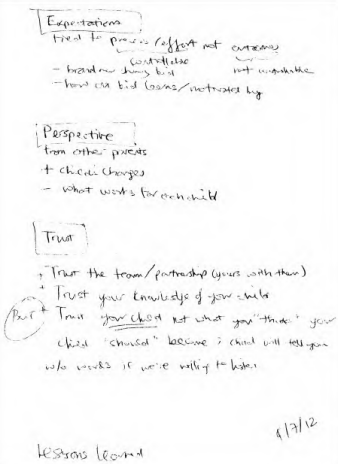 Expectations
tied to process/effort not outcomes
controllable not controllable
- how our kid learns/motivated by
Perspective
from other parents
+ child changes
- what works for each child
Trust
+ Trust the team/partnership (yours with them)
+ Trust your knowledge of your child
+ Trust your child not what you "think" your
child "should" become; child will tell you
w/o words if we're willing to listen
4/7/12
Lessons Learned